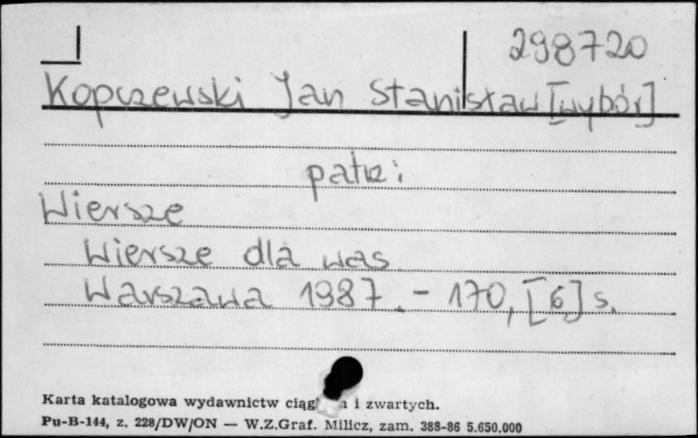 298720
Kopczewski Jan Stanisław [wybór]
patrz:
Wiersze
Wiersze dla was
Warszawa 1987. - 170, [6] s.
Karta katalogowa wydawnictw i zwartych.
Pu-B-144, z. 228/DW/ON — W.Z.Graf. Milicz, zam. 388-86 5.650.000